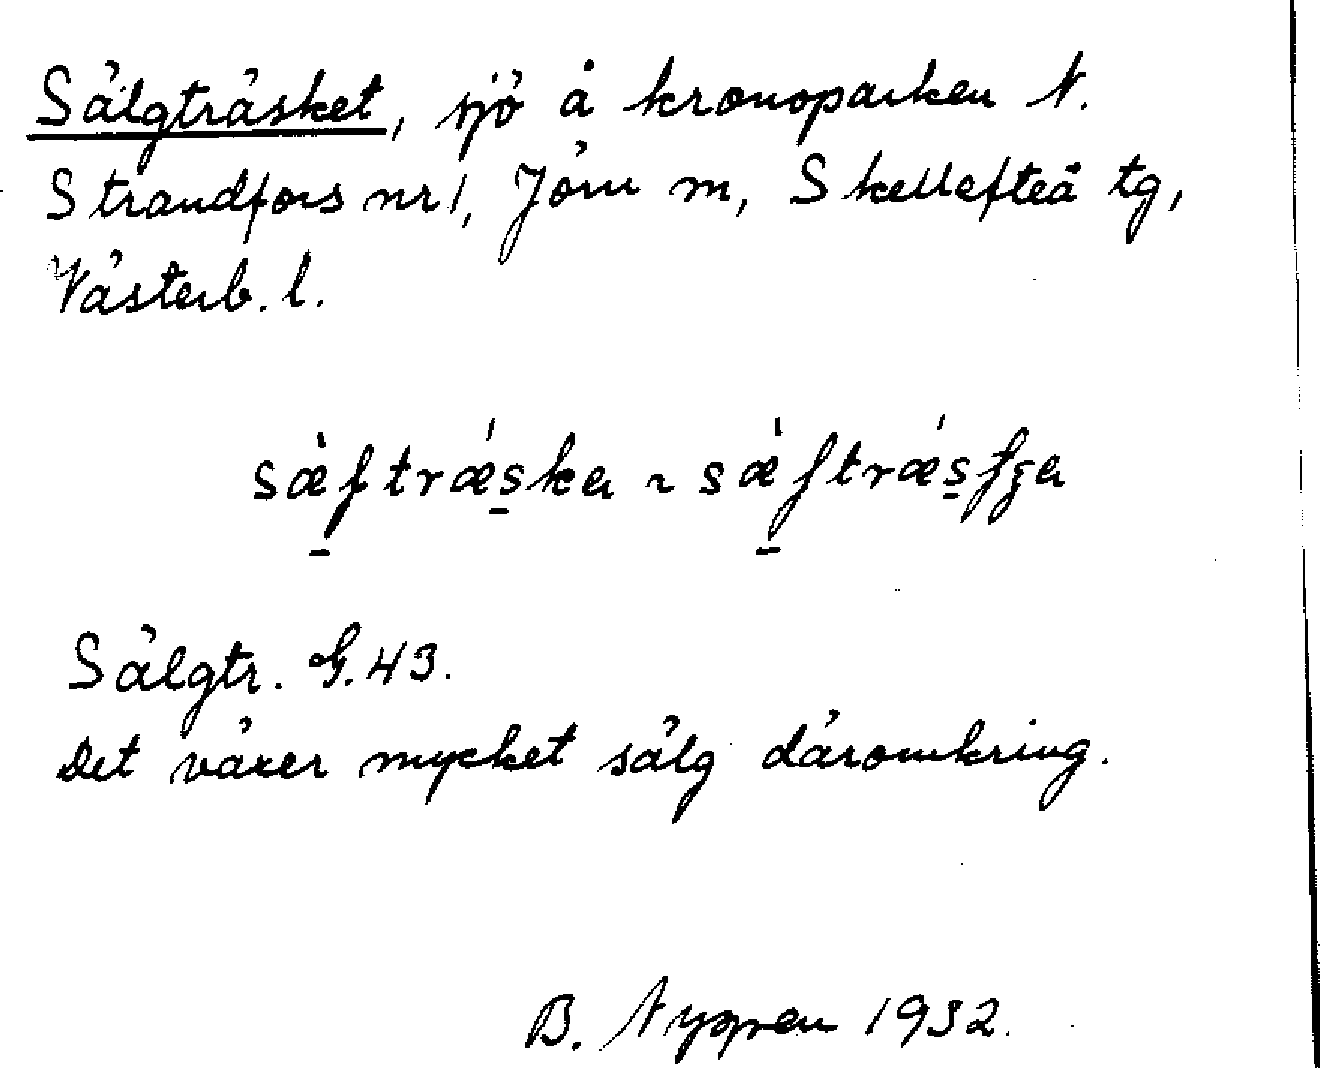 Sälgträsket, sjö å kronoparken N.
Strandfors nr 1, Jörn sn, Skellefteå tg,
Västerb. l.
Sälgtr. G. 43.
Det växer mycket sälg däromkring.
B. Nygren 1932.